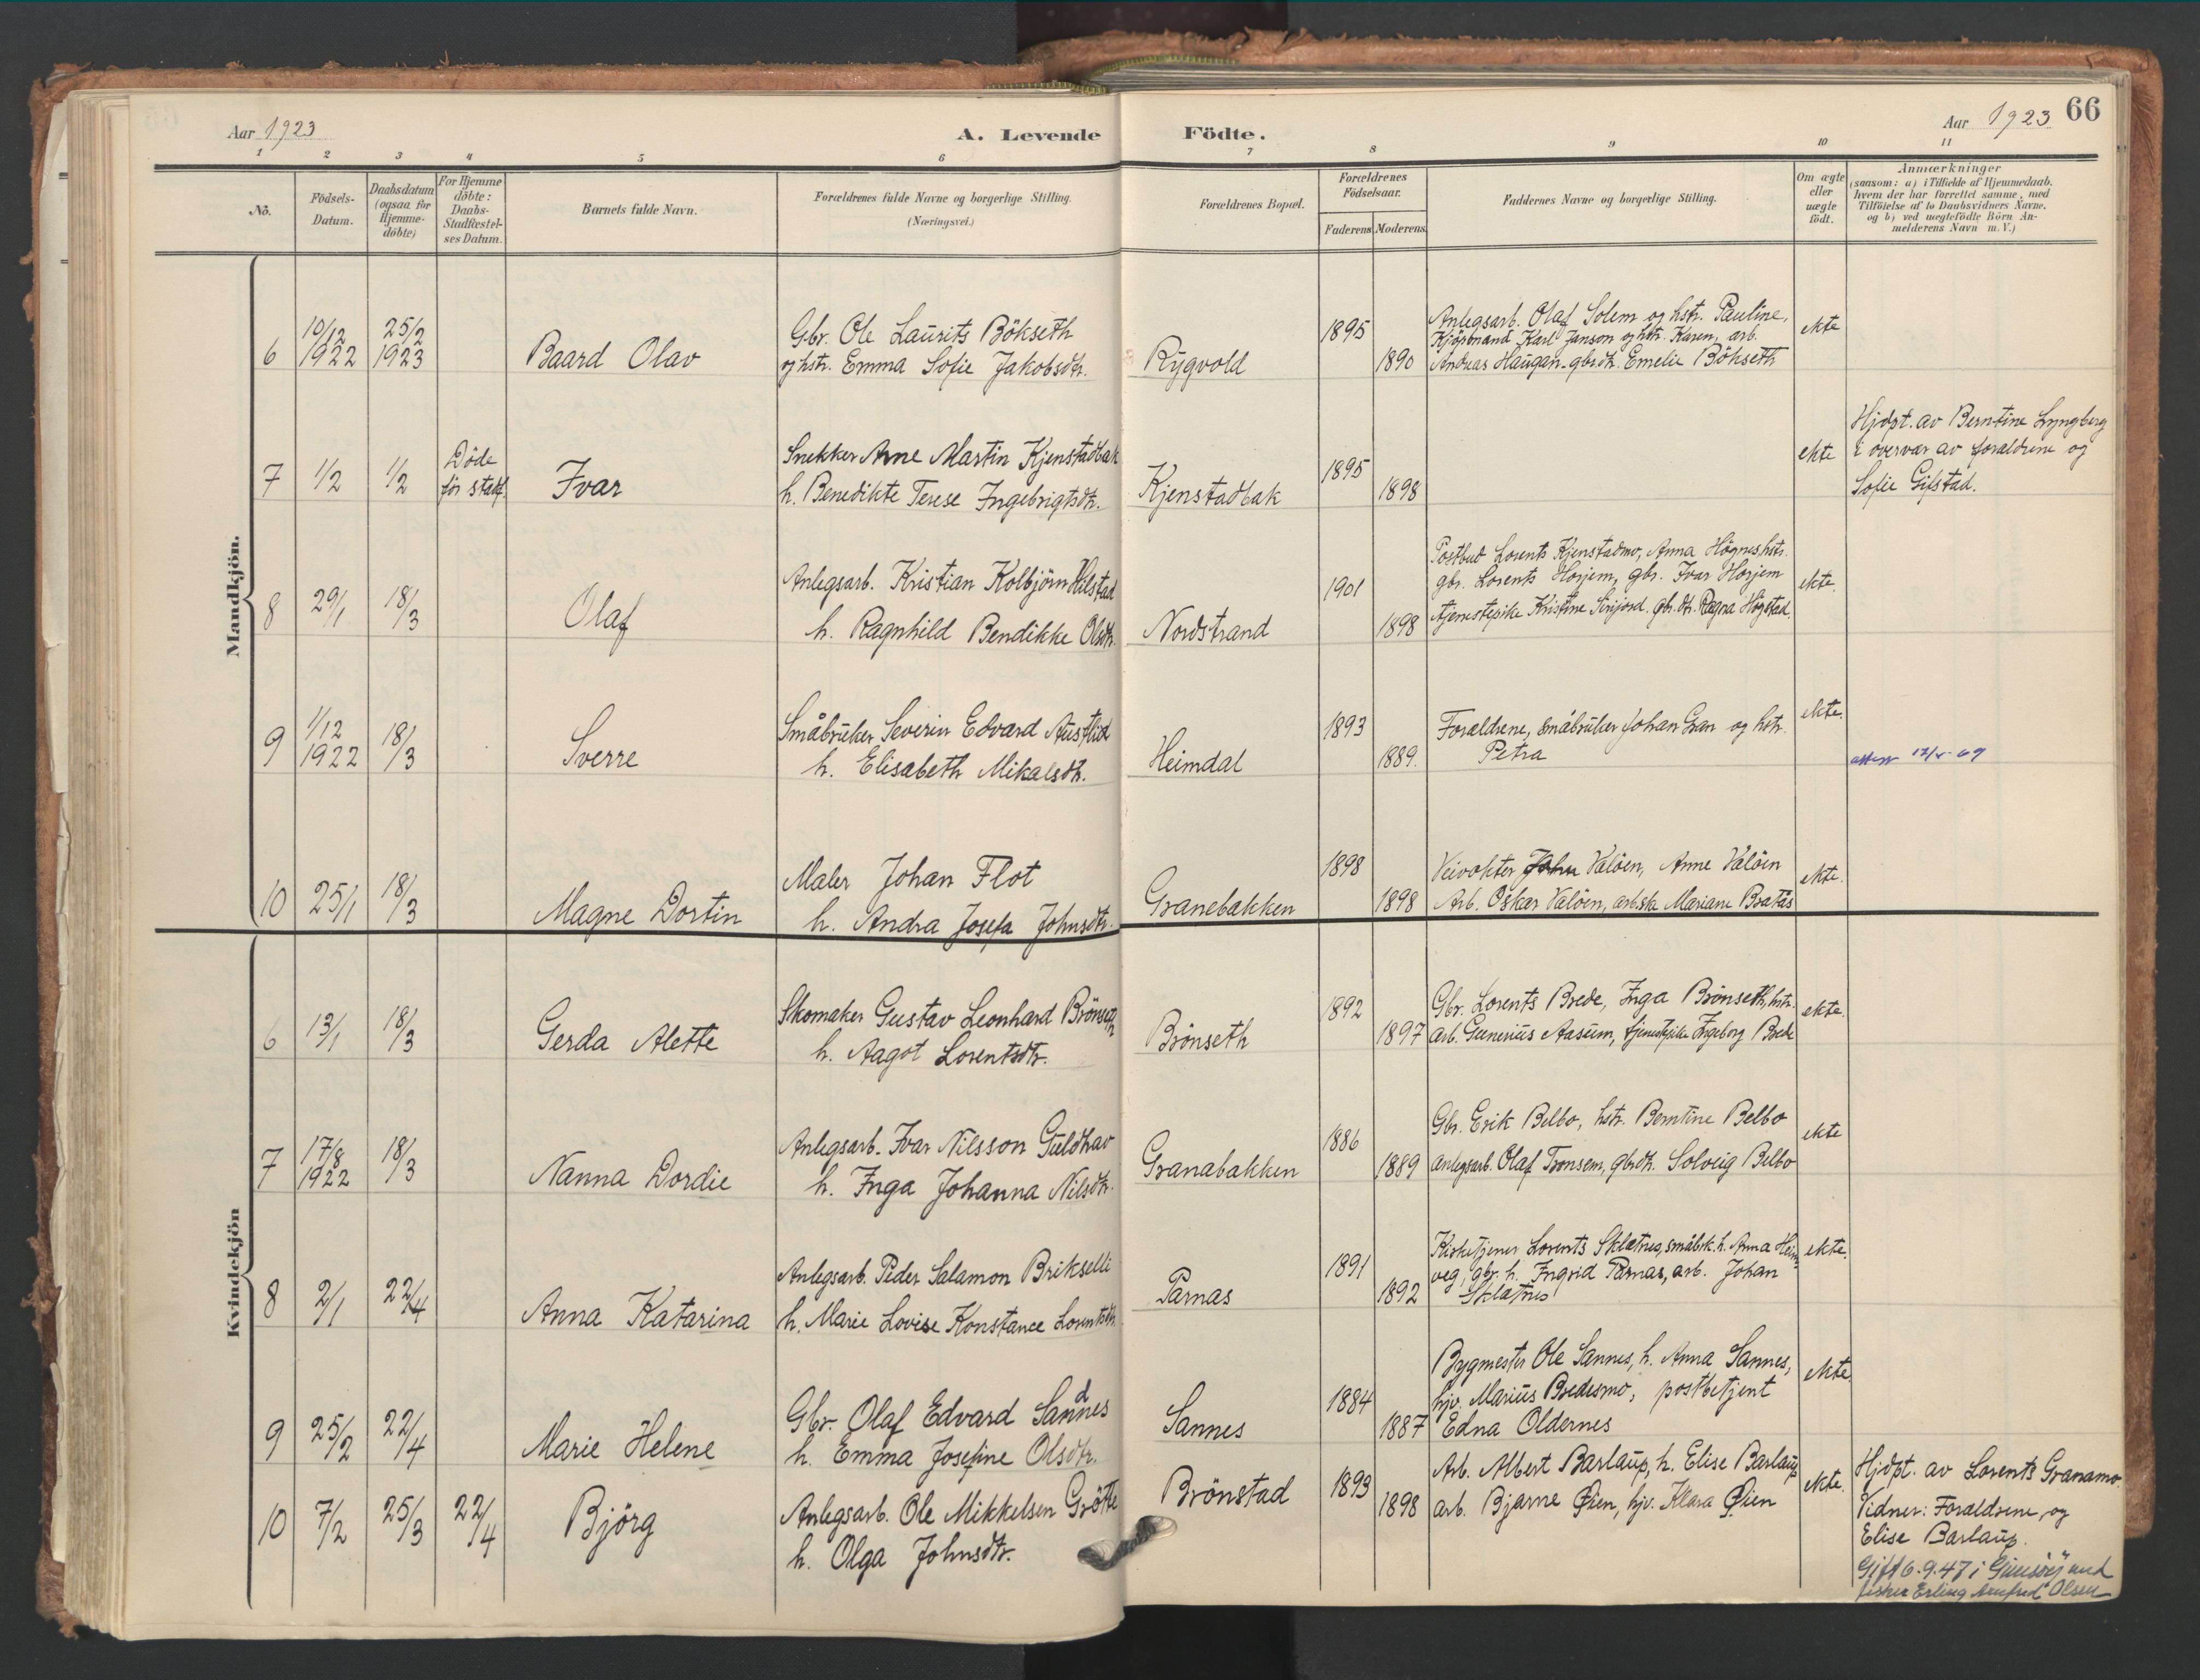 Aar 1923
A. Levende Födte.
Aar 1923
66
1 2 3 4 5 6 7 8 9 10 11
No.
Födsels-
Datum.
Daabsdatum
(ogsaa for
Hjemme-
döbte)
For Hjemme
döbte:
Daabs-
Stadfæstel-
ses Datum.
Barnets fulde Navn.
Forældrenes fulde Navne og borgerlige Stilling.
(Næringsvei.)
Forældrenes Bopæl.
Forældrenes
Födselsaar.
Faderens Moderens
Faddernes Navne og borgerlige Stilling.
Om ægte
eller
uægte
födt.
Anmærkninger
(saasom: a) i Tilfælde af Hjemmedaab,
hvem der har forrettet samme, med
Tilföielse af to Daabsvidners Navne.
og b) ved uegtefödte Börn An-
melderens Navn m. V.)
Mandkjön.
6
10/12
1922
25/2
1923
Baard Olav
Gbr. Ole Laurits Bökseth
og hstr. Emma Sofie Jakobsdtr.
Rygvold
1895
1890
Anlegsarb. Olaf Solem og hstr. Pauline,
Kjöpmand Karl Janson og hstr. Karen, arb.
Andreas Haugan, gbrdtr. Emelie Bökseth
ekte
7
1/2
1/2
Döde
för stadf.
Ivar
Snekker Arne Martin Kjenstadbak
h. Benedikte Terese Ingebrigtsdtr.
Kjenstadbak
1895
1898
ekte
Hjdpt. av Berntine Lyngberg
i overvær av forældrene og
Sofie Gifstad.
8
29/1
18/3
Olaf
Anlegsarb. Kristian Kolbjörn Hilstad
h. Ragnhild Bendikke Olsdtr.
Nordstrand
1901
1898
Postbud Lorents Kjenstadmo, Anna Högnes, hstr.
gbr. Lorents Horjem, gbr. Ivar Horjem
tjenestepike Kristine Sirijord. gbr.dtr. Ragna Högstad.
ekte.
9
1/12
1922
18/3
Sverre
Småbruker Severin Edvard Austlid
h. Elisabeth Mikalsdtr.
Heimdal
1893
1889.
Forældrene, småbruker Johan Gran og hstr.
Petra
ekte.
10
25/1
18/3
Magne Dortin
Maler Johan Flot
h. Andra Josefa Johnsdtr.
Granebakken
1898
1898
Veivokter John Valöen, Anne Valöen
Arb. Oskar Valöen, arbske Mariane Bratås
ekte.
Kvindekjön
6
13/1
18/3
Gerda Alette
Skomaker Gustav Leonhard Brönseth
h. Aagot Lorentsdtr.
Brönseth
1892
1897
Gbr. Lorents Brede, Inga Brönseth, hstr.
arb. Gunerius Aasum, tjenestepike Ingeborg Brede
ekte.
7
17/8
1922
18/3
Nanna Dordie
Anlegsarb. Ivar Nilsson Guldhav
h. Inga Johanna Nilsdtr.
Granabakken
1886
1889
Gbr. Erik Belbo, hstr. Berntine Belbo
anlegsarb. Olaf Tronsem, gbrdtr. Solveig Belbo
ekte
8
2/1
22/4
Anna Katarina
Anlegsarb. Peder Salamon Brikselli
h. Marie Lovise Konstance Lorentsdtr.
Parnas
1891
1892
Kirketjener Lorents Skletnes, småbrk. h. Anna Heim-
veg, gbr. h. Ingrid Parnas, arb. Johan
Skletnes
ekte.
9
25/2
22/4
Marie Helene
Gbr. Olaf Edvard Sandnes
h. Emma Josefine Olsdtr.
Sannes
1884
1887
Bygmester Ole Sannes, h. Anna Sannes,
hjv. Marius Bredesmo, postbetjent
Edna Oldernes
ekte.
10
7/2
25/3
22/4
Björg
Anlegsarb. Ole Mikkelsen Grötte
h. Olga Johnsdtr.
Brönstad
1893
1898
Arb. Albert Barlaup, h. Elise Barlaup,
arb. Bjarne Øien, hjv. Klara Øien
ekte.
Hjdpt. av Lorents Granamo.
Vidner: Forældrene, og
Elise Barlaup.
Gift 6.9.47 i Gimsöy med
fisker Erling Arnfred Olsen